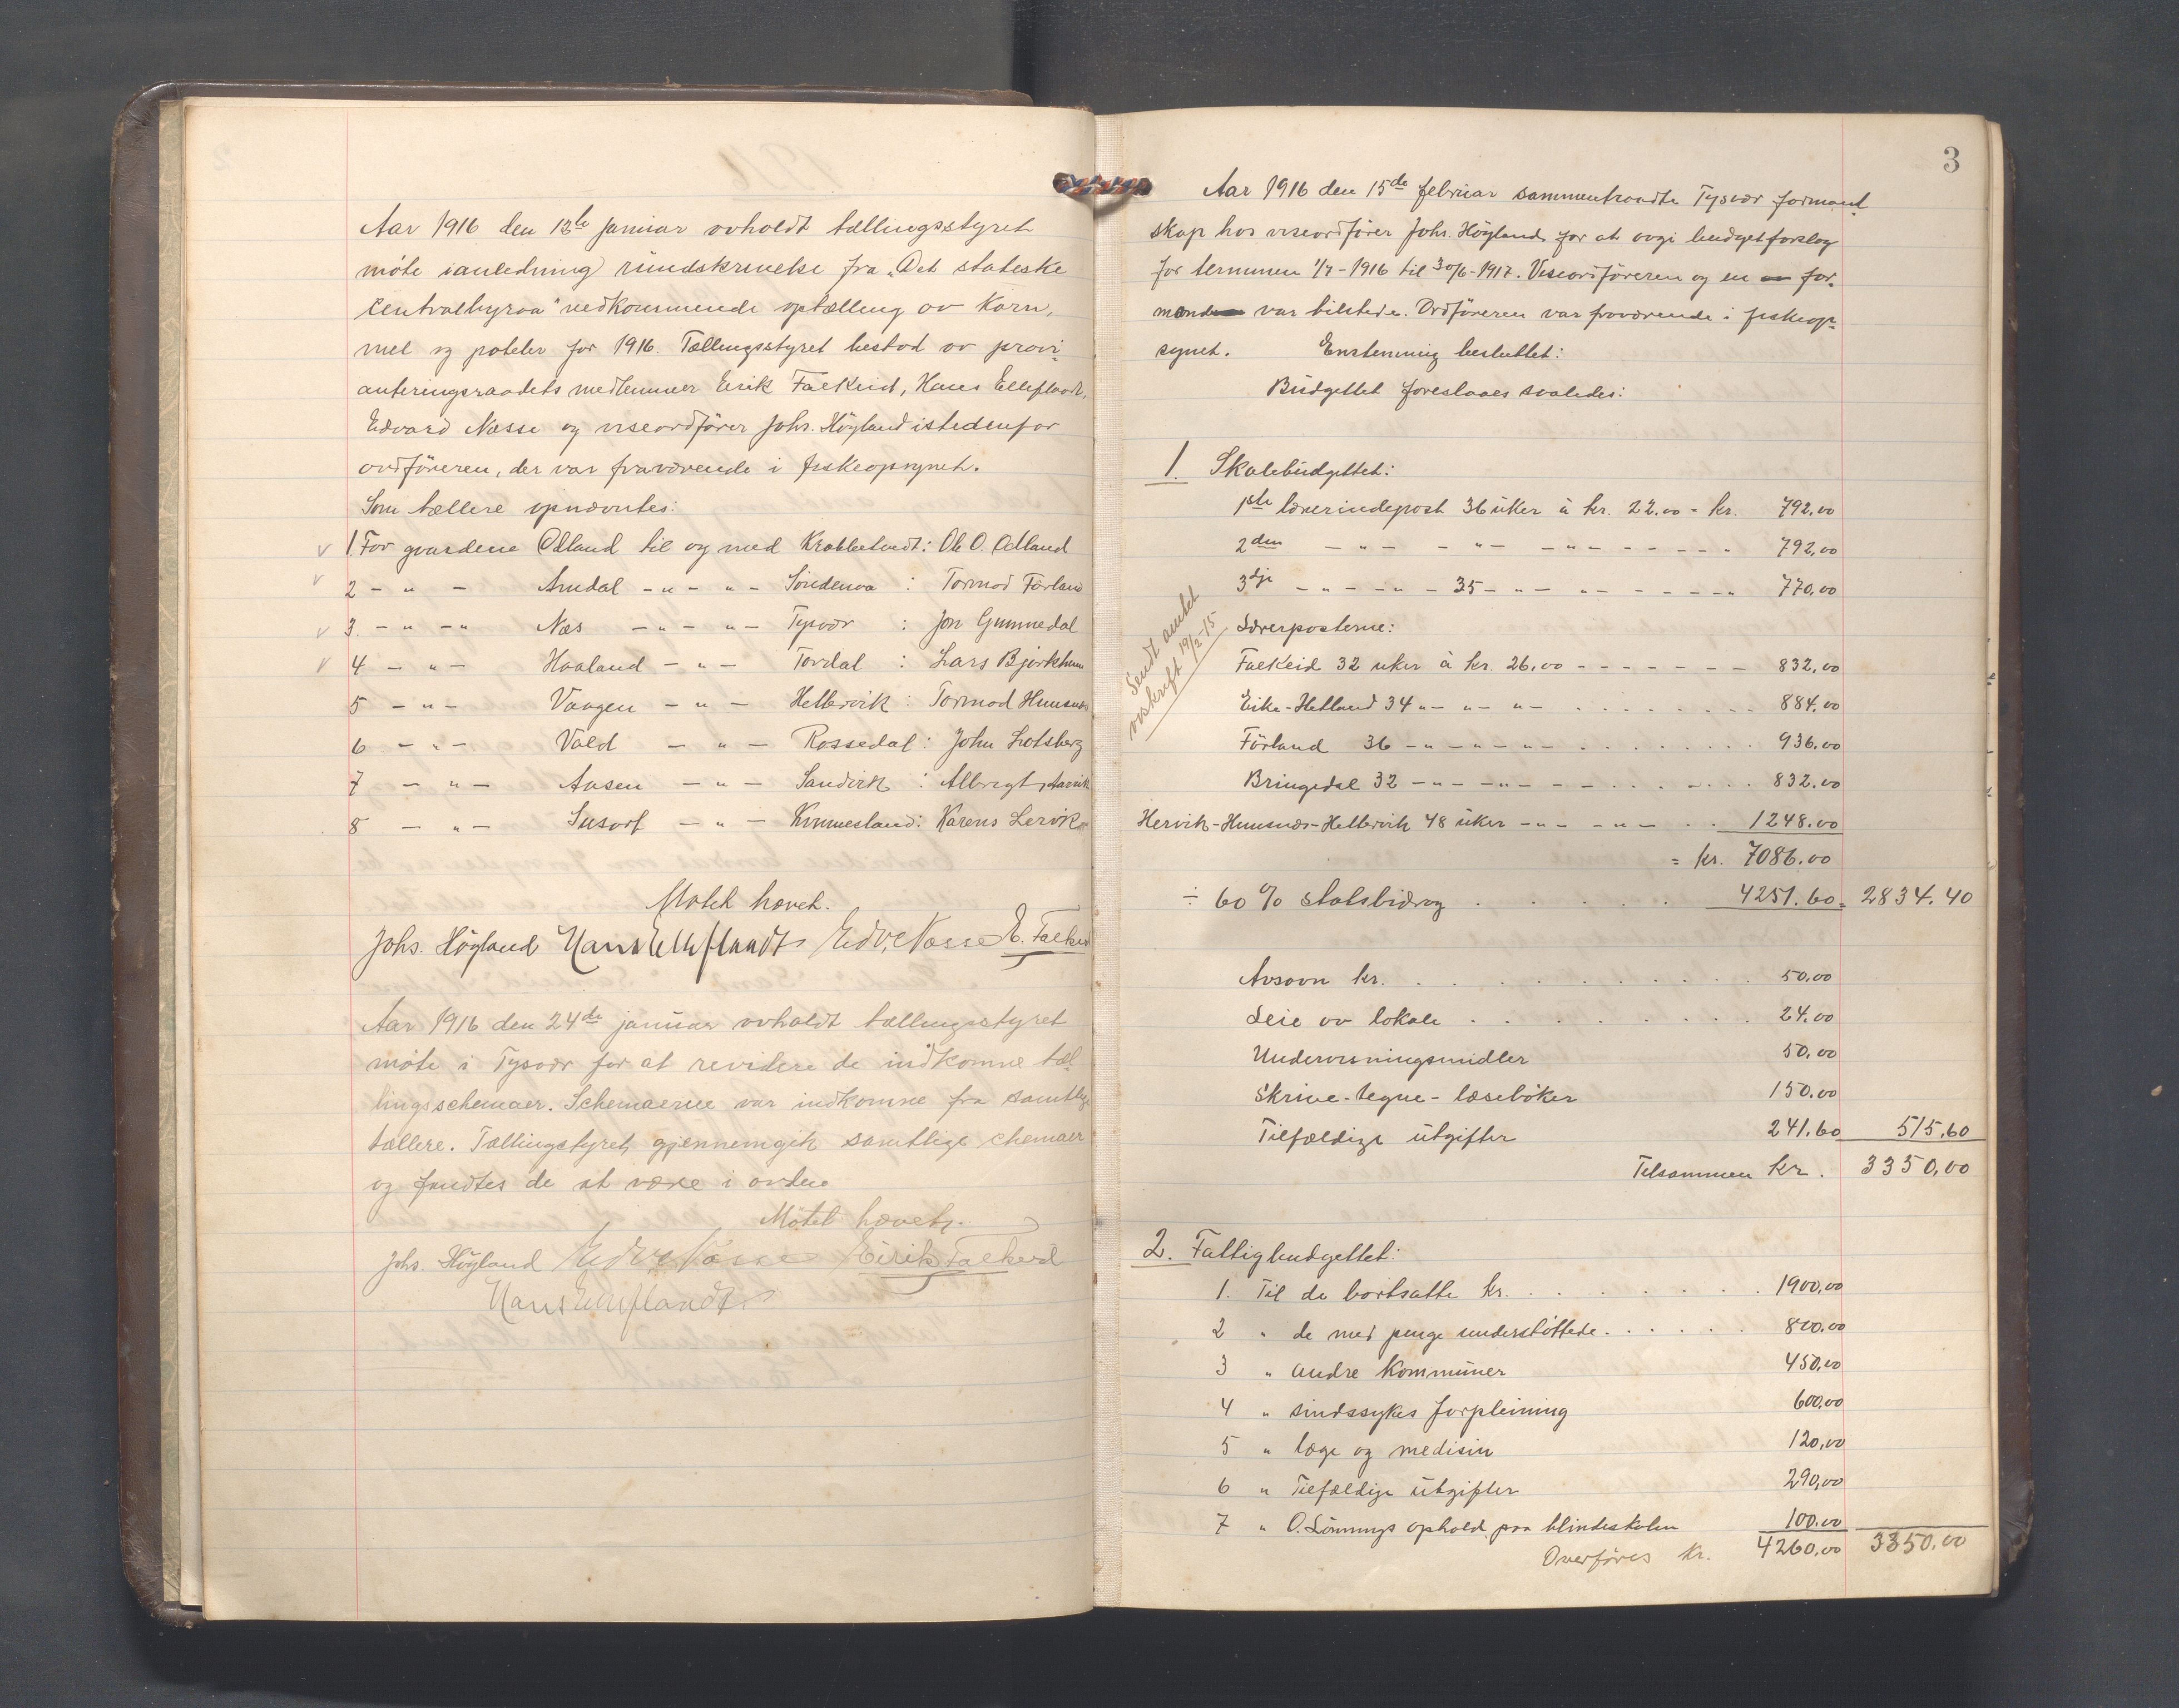 Aar 1916 den 13de januar avholdt tællingsstyret
møte i anledning rundskrivelse fra "Det statistiske
Centralbyraa" vedkommende optælling av korn,
mel og poteter for 1916. Tællingsstyret bestod av provi-
anteringsraadets medlemmer Eirik Falkeid, Hans Ellefsandt,
Edvard Næsse og viseordfører Johs. Høyland istedenfor
ordføreren, der var fraværende i fiskeopsynet.
Som tællere opnævntes:
1. For gaardene Ødland til og med Krabbetveit: Ole O. Ødland
2 - " - Amdal - " - " - Søndenaa : Tormod Førland
3. - " - " Næs - " - " - Tysvær : Jon Gunnedal
4 - " - Haaland - " - Tordal : Lars Bjørkhaug
5 - " - Vaagen - " - Hettervik : Tormod Hunsnæs
6 - " - Vald - " - Rossedal : John Lotsberg
7 - " - Aasen - " - Sandvik : Albrigt Aarvik
8 - " - Susort - " - Kvinnesland: Karens Lervik
Møtet hævet.
Johs. Høyland Hans Ellefsandt Edv. Næsse E. Falkeid
Aar 1916 den 24de januar avholdt tællingsstyret
møte i Tysvær for at revidere de indkomne tæl-
lingsschemaer. Schemaerne var indkomne fra samtlige
tællere. Tællingstyret gjennemgik samtlige chemaer
og fandtes de at være i orden
Møtet hævet.
Johs. Høyland Edv. Næsse Eirik Falkeid
Hans Ellefsandt
3
Aar 1916 den 15de februar sammentraadte Tysvær formand-
skap hos viseordfører Johs. Høyland for at avgi budgetforslag
for terminen 1/7-1916 til 30/6-1917. Viseordføreren og en for-
mand var tilstede. Ordføreren var fraværende i fiskeop-
synet. Enstemmig besluttet:
Budgettet foreslaaes saaledes:
1. Skolebudgettet:
1ste lærerindepost 36 uker à kr. 22.00 = kr. 792,00
2den - " - - " - - " - - - - - " 792,00
3dje - " - - " - 35 - " - " - - - - - " 770,00
Sendt amtet
avskrift 19/2-15
Lærerposterne:
Falkeid 32 uker à kr. 26,00 - - - - - - - 832,00
Eike-Hetland 34 " - " - " - . . . . . . . . 884,00
Førland 36 - " - " - " - . . . . . . . . 936,00
Bringedal 32 - " - - " - - - . . . - . . . 832.00
Hervik-Hunsnæs-Hettervik 48 uker - " - - " - . . 1248.00
= kr. 7086.00
÷ 60 % statsbidrag . . . . . 4251.60 = 2834.40
Avsavn kr. . . . . . . . . . . 50,00
Leie av lokale . . . . . . . . . 24.00
Undervisningsmidler 50,00
Skrive-tegne-læsebøker 150.00
Tilfældige utgifter 241.60 515,60
Tilsammen kr. 3350,00
2. Fattigbudgettet:
1. Til de bortsatte kr. . . . . . . . . . 1900,00
2 " de med penge understøttede . . . . . . 800,00
3 " andre kommuner 450,00
4 " sindssykes forpleining 600,00
5 " læge og medisin 120,00
6 " Tilfældige utgifter 290,00
7 " O. Lønnings ophold paa blindeskolen 100.00
Overføres kr. 4260,00 3350.00